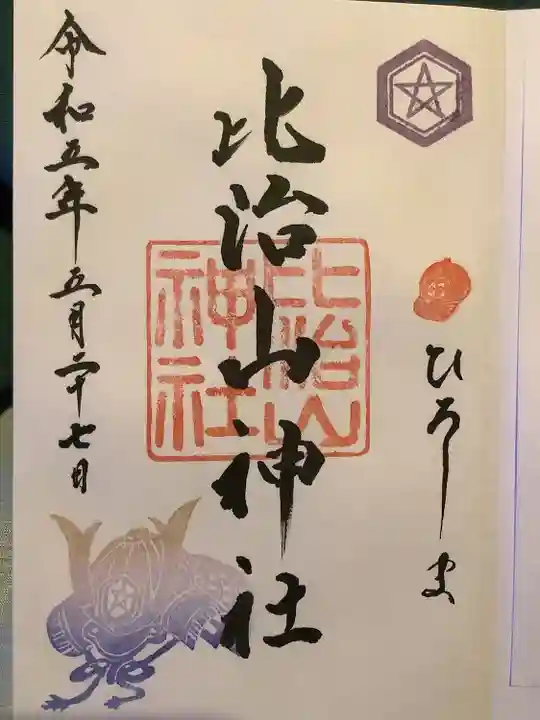 ひろしま
比治山神社
比治山
神社
令和五年五月二十七日